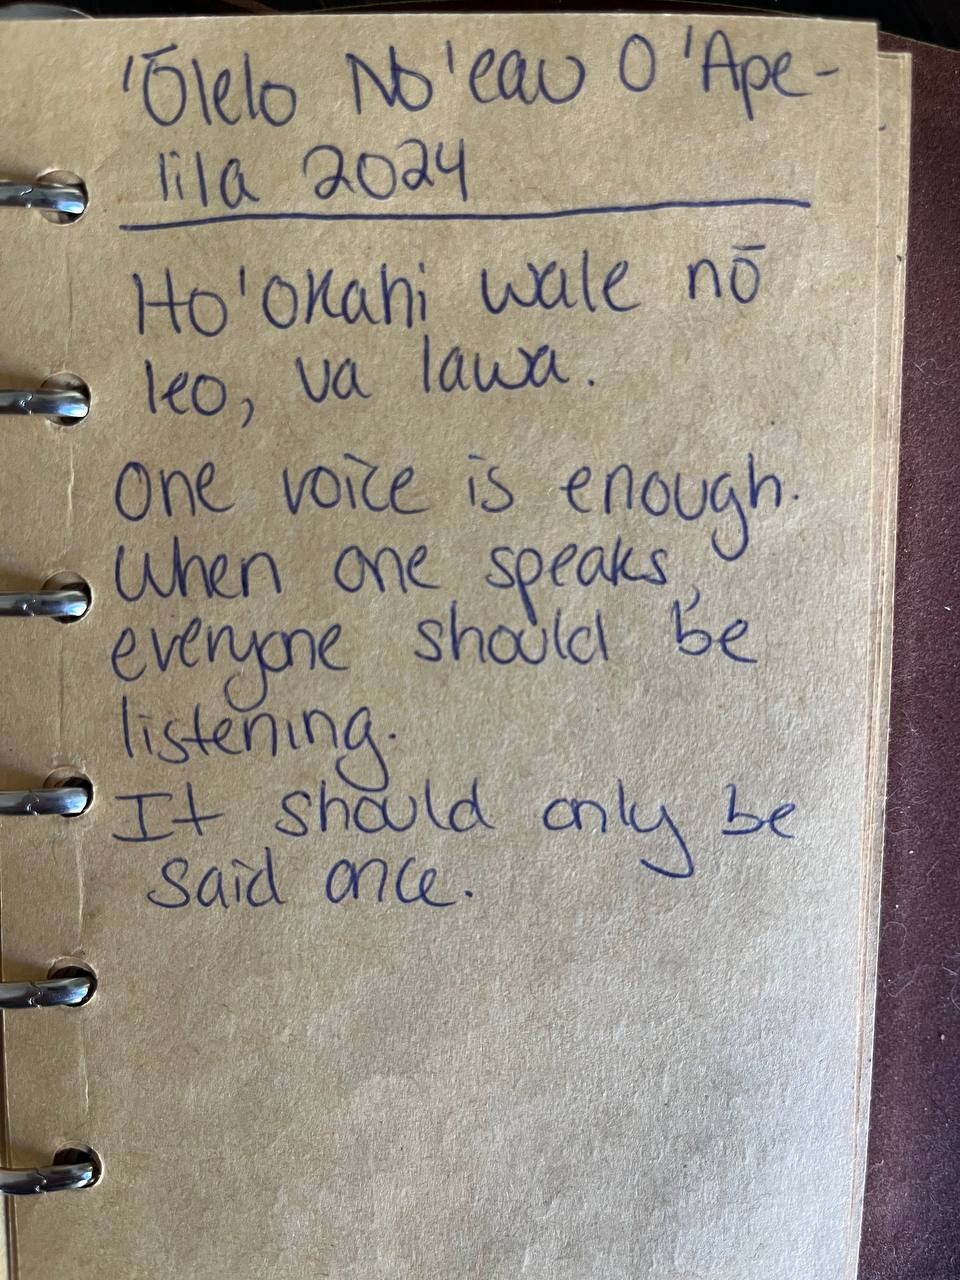 'Ōlelo No'eau O 'Ape-
lila 2024
Ho'okahi wale nō
leo, ua lawa.
One voice is enough.
When one speaks,
everyone should be
listening.
It should only be
said once.